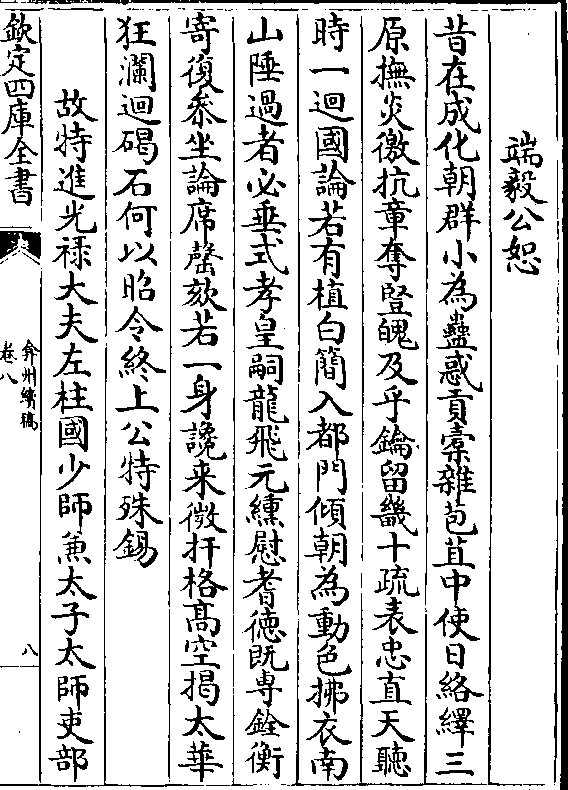 端毅公恕
昔在成化朝群小為蠱惑貢橐雜苞苴中使日絡繹三
原撫炎徼抗章奪豎魄及乎鑰留畿十疏表忠直天聽
時一迴國論若有植白簡入都門傾朝為動色拂衣南
山陲過者必垂式孝皇嗣龍飛元纁慰耆德既專銓衡
寄復叅坐論席謦欬若一身讒来微扞格髙空揭太華
狂瀾迴碣石何以昭令終上公特殊錫
故特進光禄大夫左柱國少師兼太子太師吏部
欽定四庫全書
弇州續稿
卷八
八